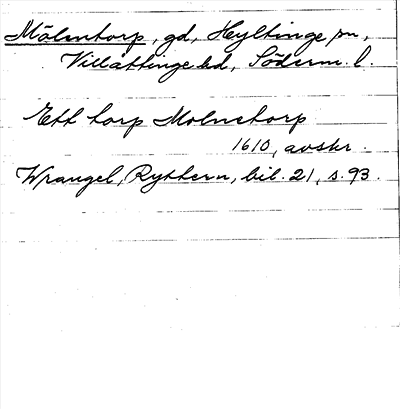 Mölntorp, gd, Hyltinge sn,
Villåttinge hd, Söderm. l.
Ett torp Molnetorp
1610, avskr.
Wrangel, Ryttern, bil. 21, s. 93.